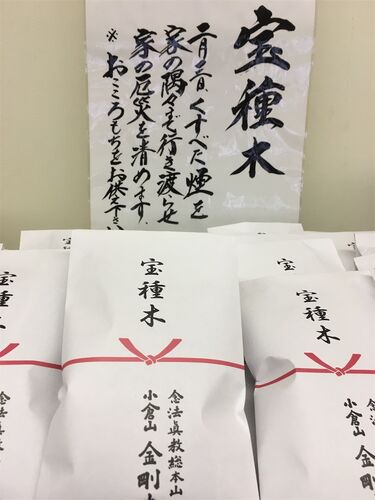 宝種木
二月三日、くすべた煙を
家の隅々まで行き渡らせ
家の厄災を清めます。
※おこころもちをお供え下さい
宝種木
宝種木
念法眞教総本山
小倉山 金剛
宝種
宝種木
念法眞教総本山
小倉山 金剛